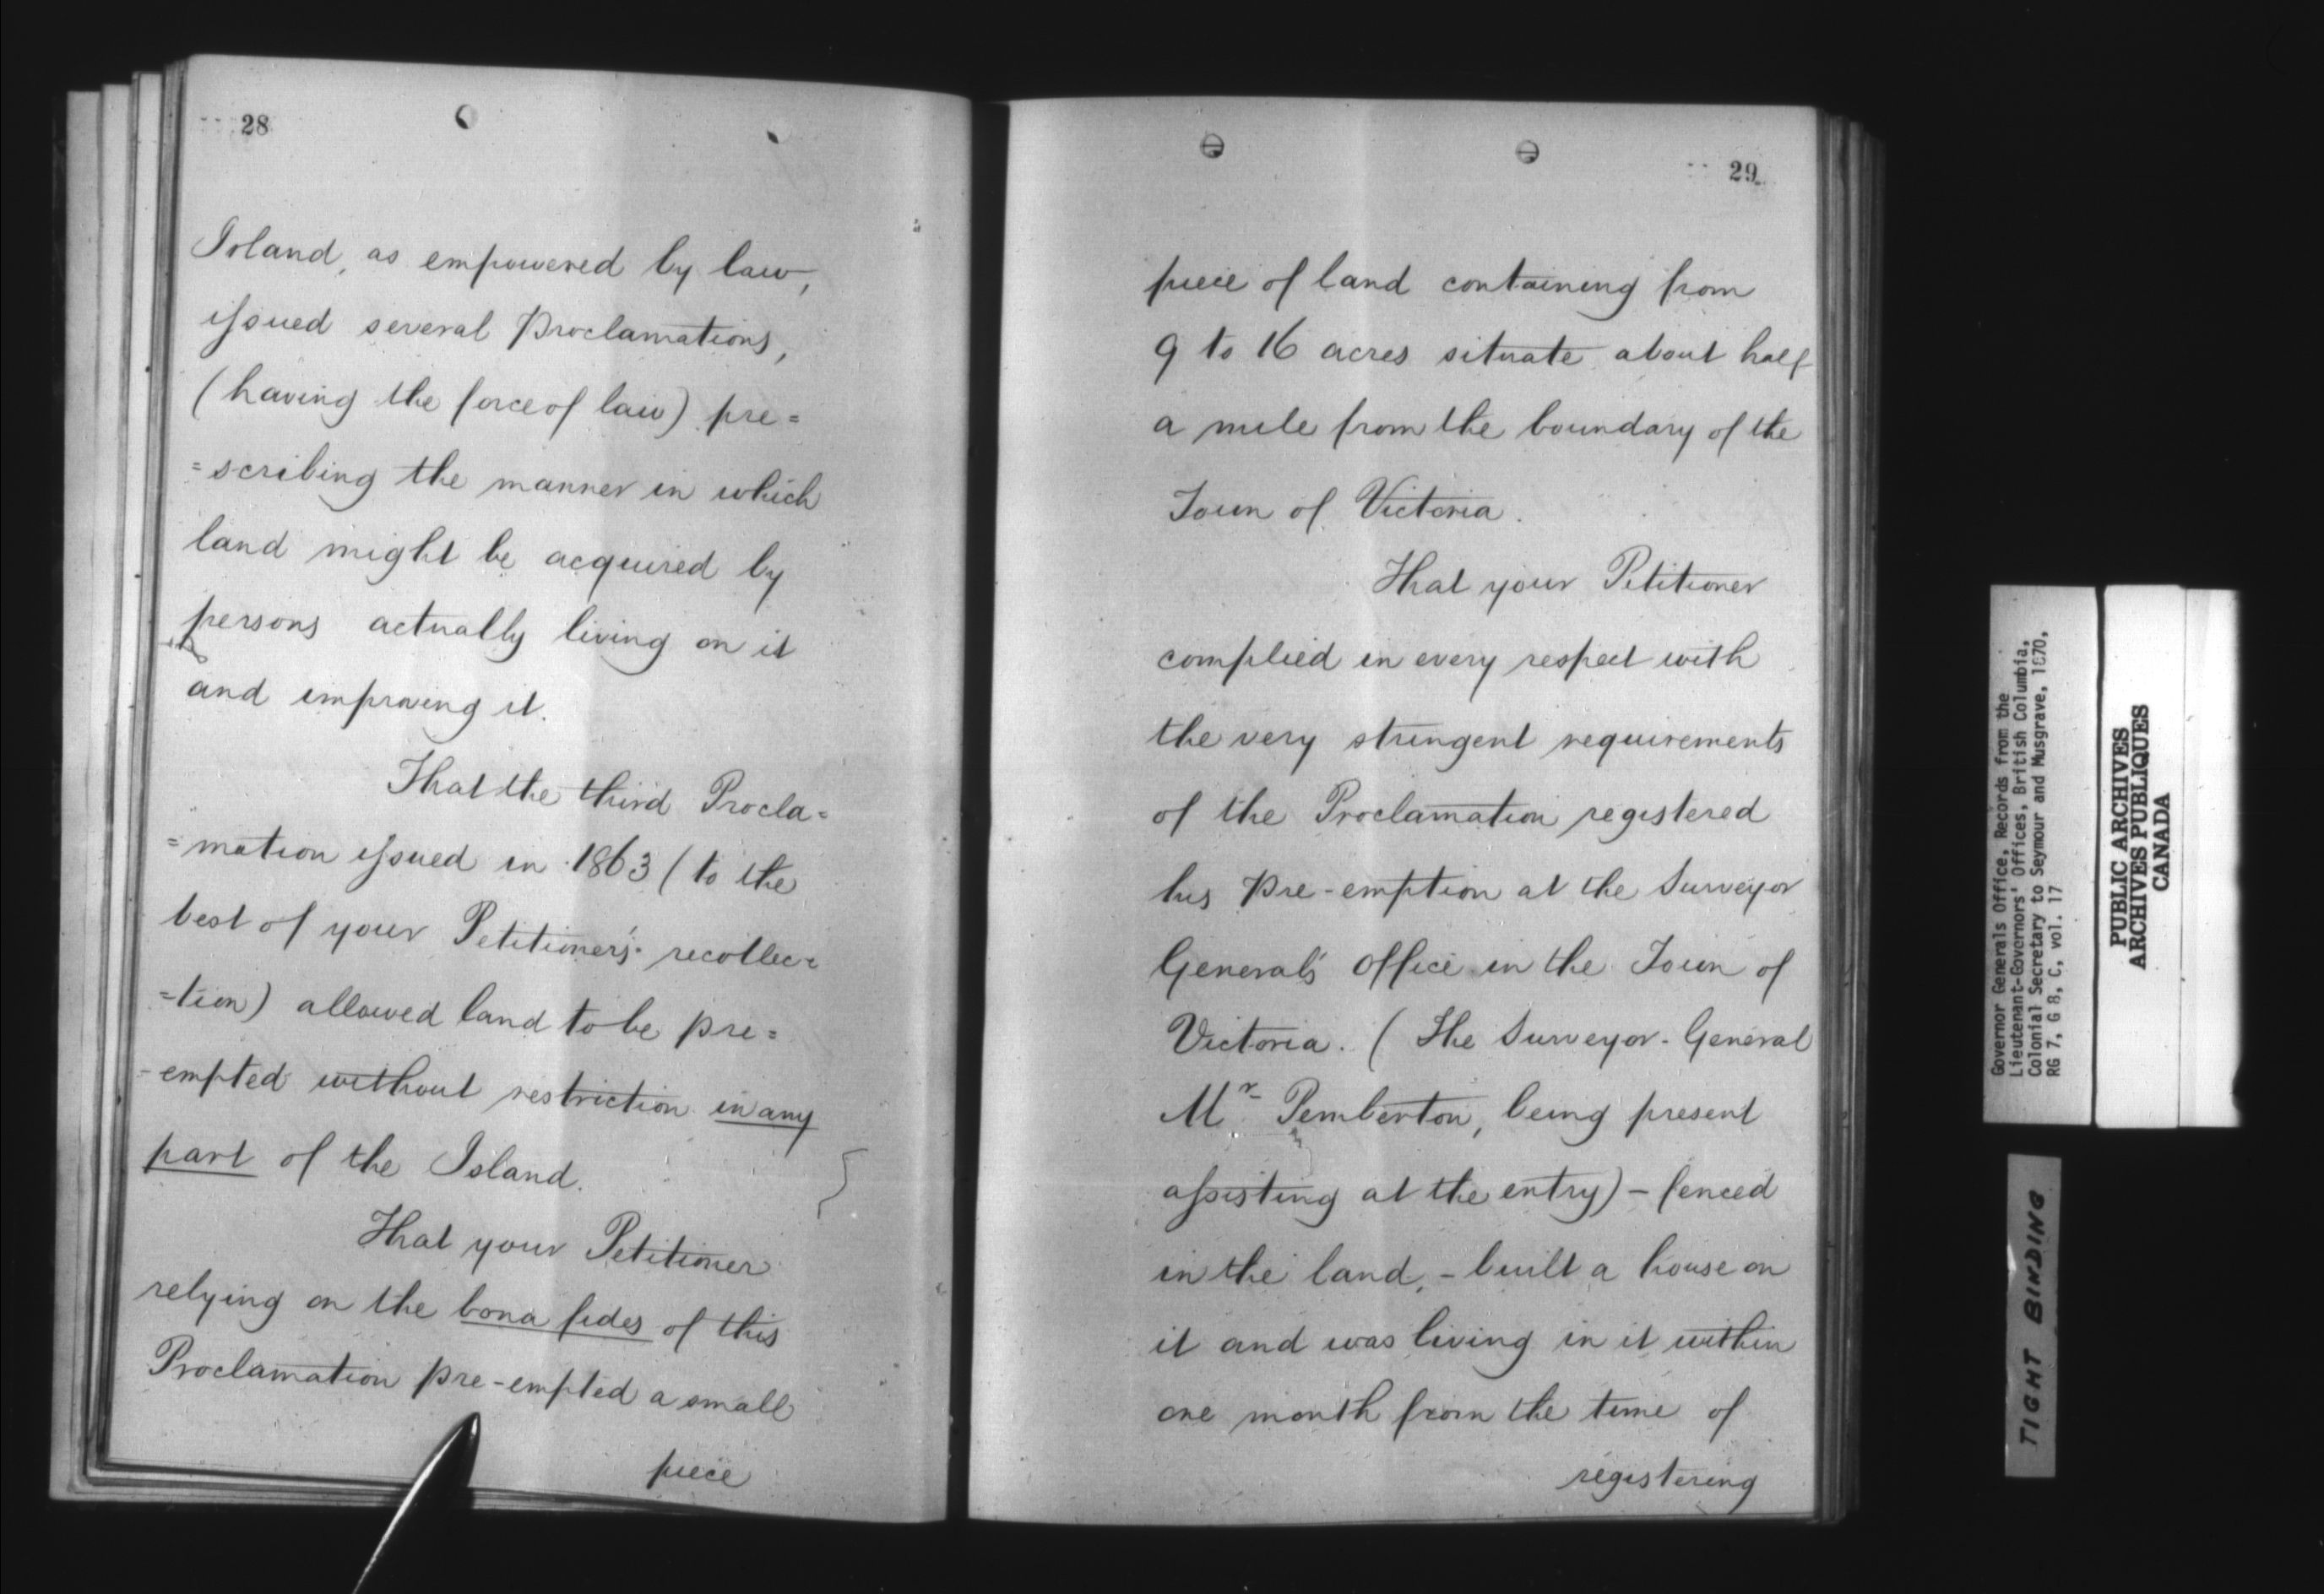 28
Island, as empowered by law,
issued several Proclamations,
(having the force of law) pre=
=scribing the manner in which
land might be acquired by
persons actually living on it
and improving it.
That the third Procla=
=mation issued in 1863 (to the
best of your Petitioner's recollec=
=tion) allowed land to be pre=
-empted without restriction in any
part of the Island.
That your Petitioner
relying on the bona fides of this
Proclamation pre-empted a small
piece
29
piece of land containing from
9 to 16 acres situate about half
a mile from the boundary of the
Town of Victoria.
That your Petitioner
complied in every respect with
the very stringent requirements
of the Proclamation registered
his Pre-emption at the Surveyor
General's Office in the Town of
Victoria. (The Surveyor-General
Mr Pemberton, being present
assisting at the entry) - fenced
in the land, - built a house on
it and was living in it within
one month from the time of
registering
Governor Generals Office, Records from the
Lieutenant-Governors' Offices, British Columbia,
Colonial Secretary to Seymour and Musgrave, 1870,
RG 7, G 8, C, vol. 17
PUBLIC ARCHIVES
ARCHIVES PUBLIQUES
CANADA
TIGHT BINDING